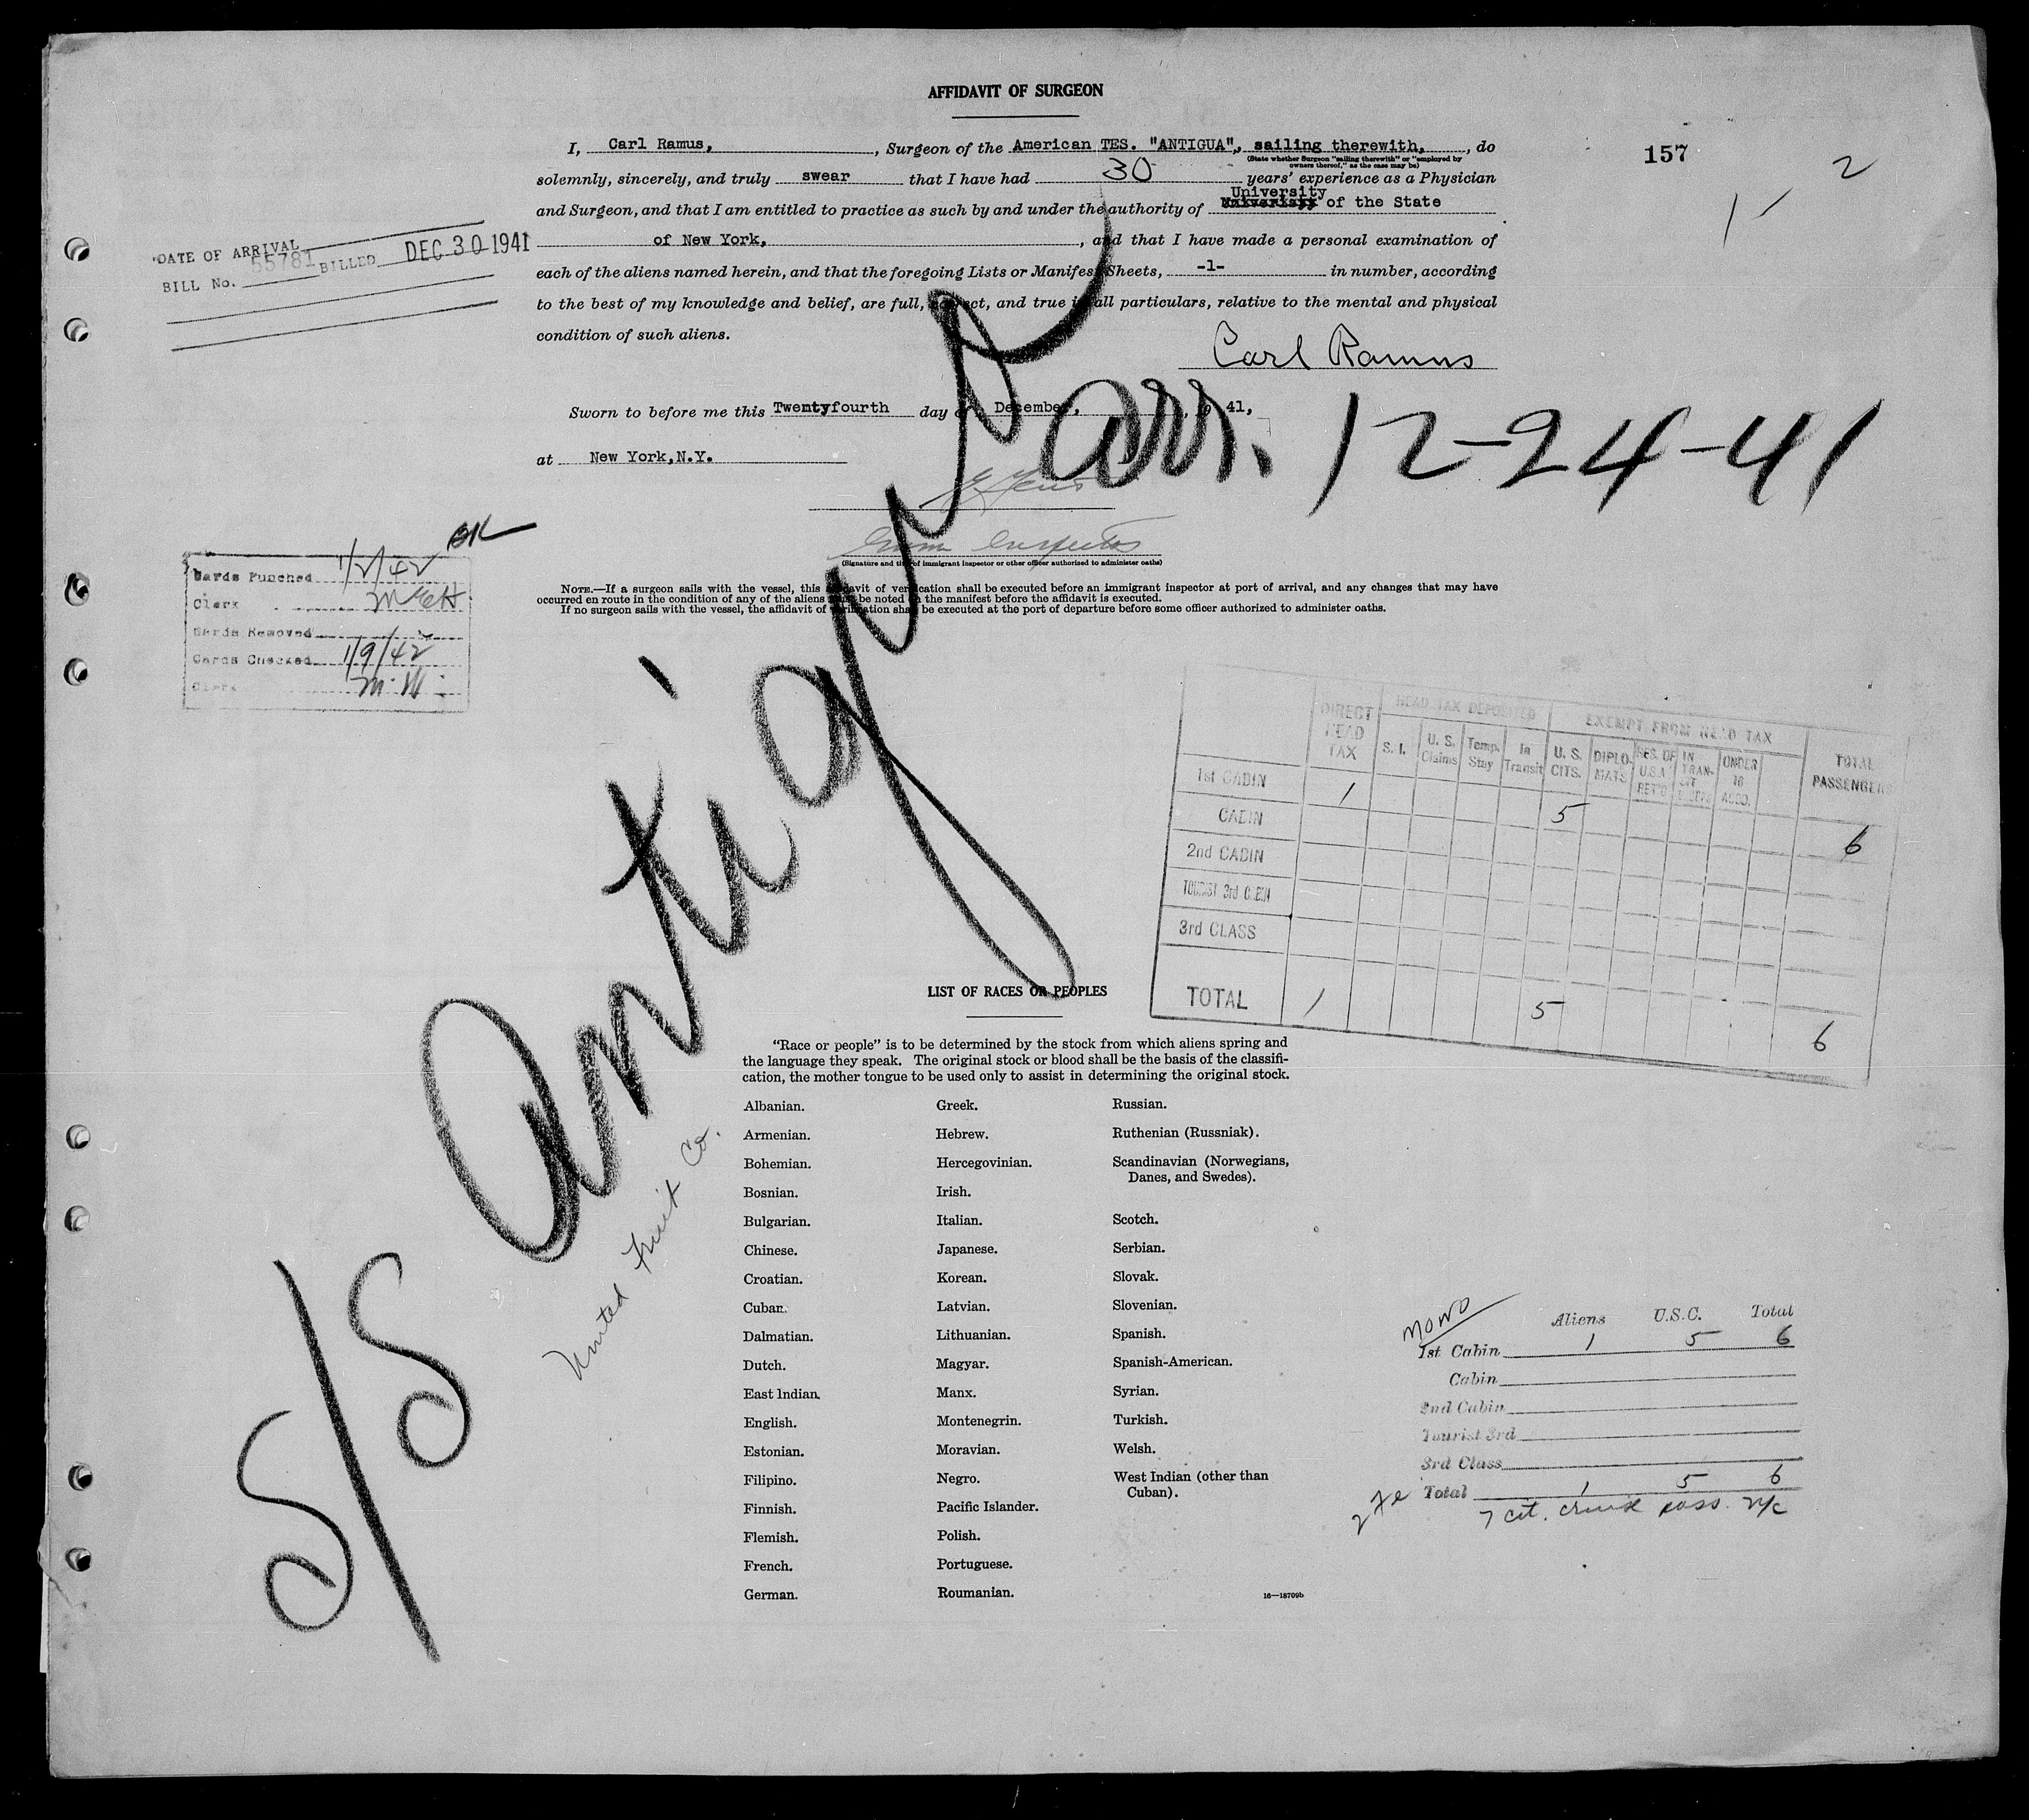 AFFIDAVIT OF SURGEON
I, Carl Ramus, , Surgeon of the American TES. "ANTIGUA", sailing therewith, , do
(State whether Surgeon "sailing therewith" or "employed by
owners thereof," as the case may be)
157
2
solemnly, sincerely, and truly swear that I have had 30 years' experience as a Physician
University
and Surgeon, and that I am entitled to practice as such by and under the authority of of the State
of New York, , and that I have made a personal examination of
each of the aliens named herein, and that the foregoing Lists or Manifest Sheets, -1- in number, according
to the best of my knowledge and belief, are full, correct, and true in all particulars, relative to the mental and physical
condition of such aliens.
Carl Ramus
DATE OF ARRIVAL
BILL No. 55781 BILLED DEC 30 1941
Sworn to before me this Twentyfourth day of December, 19 41,
at New York, N.Y.
arr. 12-24-41
Inspector
(Signature and title of immigrant inspector or other officer authorized to administer oaths)
NOTE.—If a surgeon sails with the vessel, this affidavit of verification shall be executed before an immigrant inspector at port of arrival, and any changes that may have
occurred en route in the condition of any of the aliens must be noted on the manifest before the affidavit is executed.
If no surgeon sails with the vessel, the affidavit of verification shall be executed at the port of departure before some officer authorized to administer oaths.
Cards Punched 1/2/42
Clerk
Cards Removed
Cards Checked 1/9/42
Clerk
S/S Antigua
United Fruit Co.
DIRECT HEAD TAX HEAD TAX DEPOSITED EXEMPT FROM HEAD TAX TOTAL PASSENGERS
S. I. U. S. Claims Temp. Stay In Transit U. S. CITS. DIPLO- MATS RES. OF U.S.A. RET'G IN TRAN- SIT UNDER 16 ACCO.
1st CABIN 1 5 6
CABIN
2nd CABIN
TOURIST 3rd CABIN
3rd CLASS
TOTAL 1 5 6
LIST OF RACES OR PEOPLES
"Race or people" is to be determined by the stock from which aliens spring and
the language they speak. The original stock or blood shall be the basis of the classifi-
cation, the mother tongue to be used only to assist in determining the original stock.
Albanian.
Armenian.
Bohemian.
Bosnian.
Bulgarian.
Chinese.
Croatian.
Cuban.
Dalmatian.
Dutch.
East Indian.
English.
Estonian.
Filipino.
Finnish.
Flemish.
French.
German.
Greek.
Hebrew.
Hercegovinian.
Irish.
Italian.
Japanese.
Korean.
Latvian.
Lithuanian.
Magyar.
Manx.
Montenegrin.
Moravian.
Negro.
Pacific Islander.
Polish.
Portuguese.
Roumanian.
Russian.
Ruthenian (Russniak).
Scandinavian (Norwegians,
Danes, and Swedes).
Scotch.
Serbian.
Slovak.
Slovenian.
Spanish.
Spanish-American.
Syrian.
Turkish.
Welsh.
West Indian (other than
Cuban).
16—18709b
Aliens U.S.C. Total
1st Cabin 1 5 6
Cabin
2nd Cabin
Tourist 3rd
3rd Class
Total 1 5 6
7 cit. cruise pass.